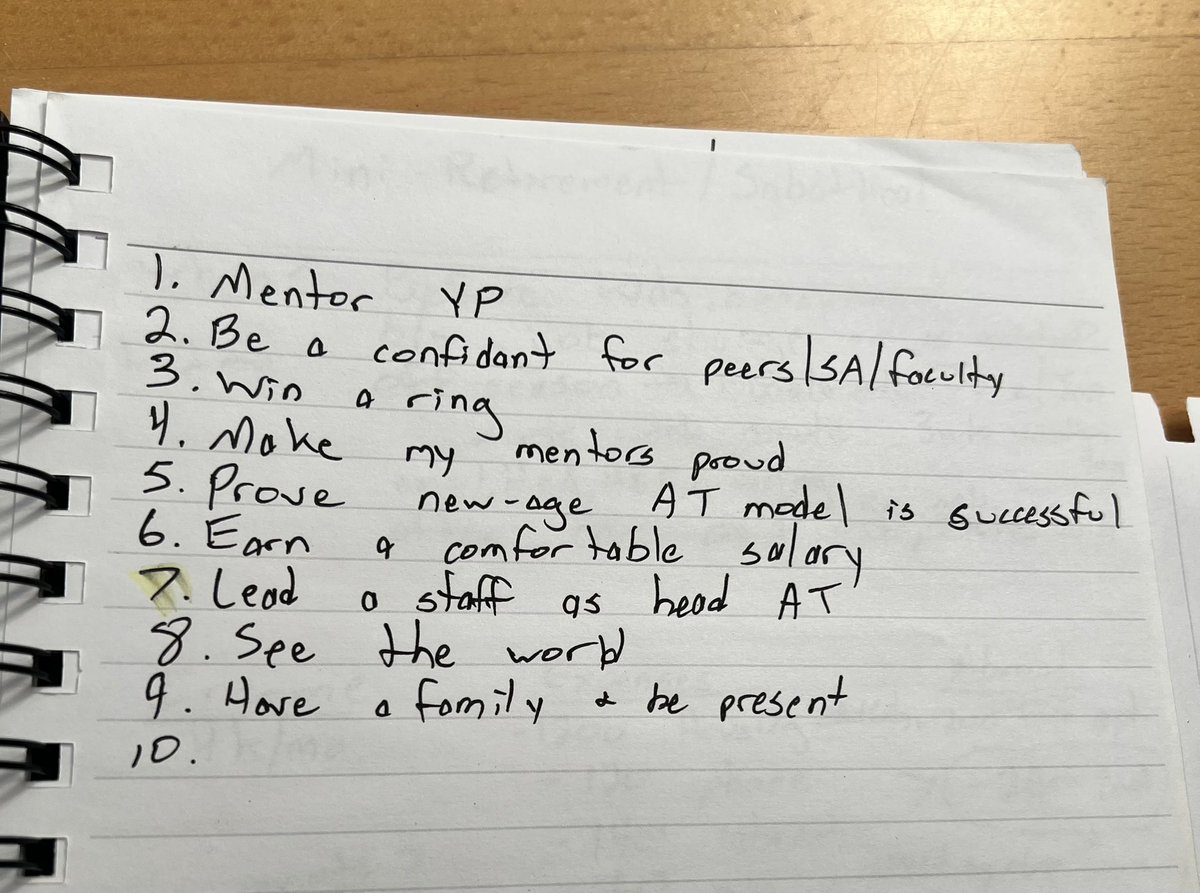 1. Mentor YP
2. Be a confidant for peers/SA/faculty
3. Win a ring
4. Make my mentors proud
5. Prove new-age AT model is successful
6. Earn a comfortable salary
7. Lead a staff as head AT
8. See the world
9. Have a family & be present
10.